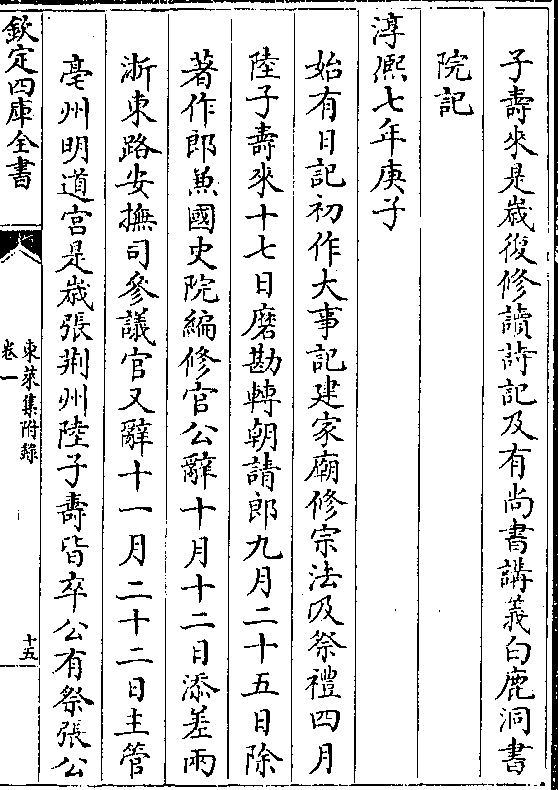 子壽來是歲復修讀詩記及有尚書講義白鹿洞書
院記
淳熙七年庚子
始有日記初作大事記建家廟修宗法及祭禮四月
陸子壽來十七日磨勘轉朝請郎九月二十五日除
著作郎兼國史院編修官公辭十月十二日添差兩
浙東路安撫司參議官又辭十一月二十二日主管
亳州明道宮是歲張荆州陸子壽皆卒公有祭張公
欽定四庫全書
東萊集附錄
卷一
十五